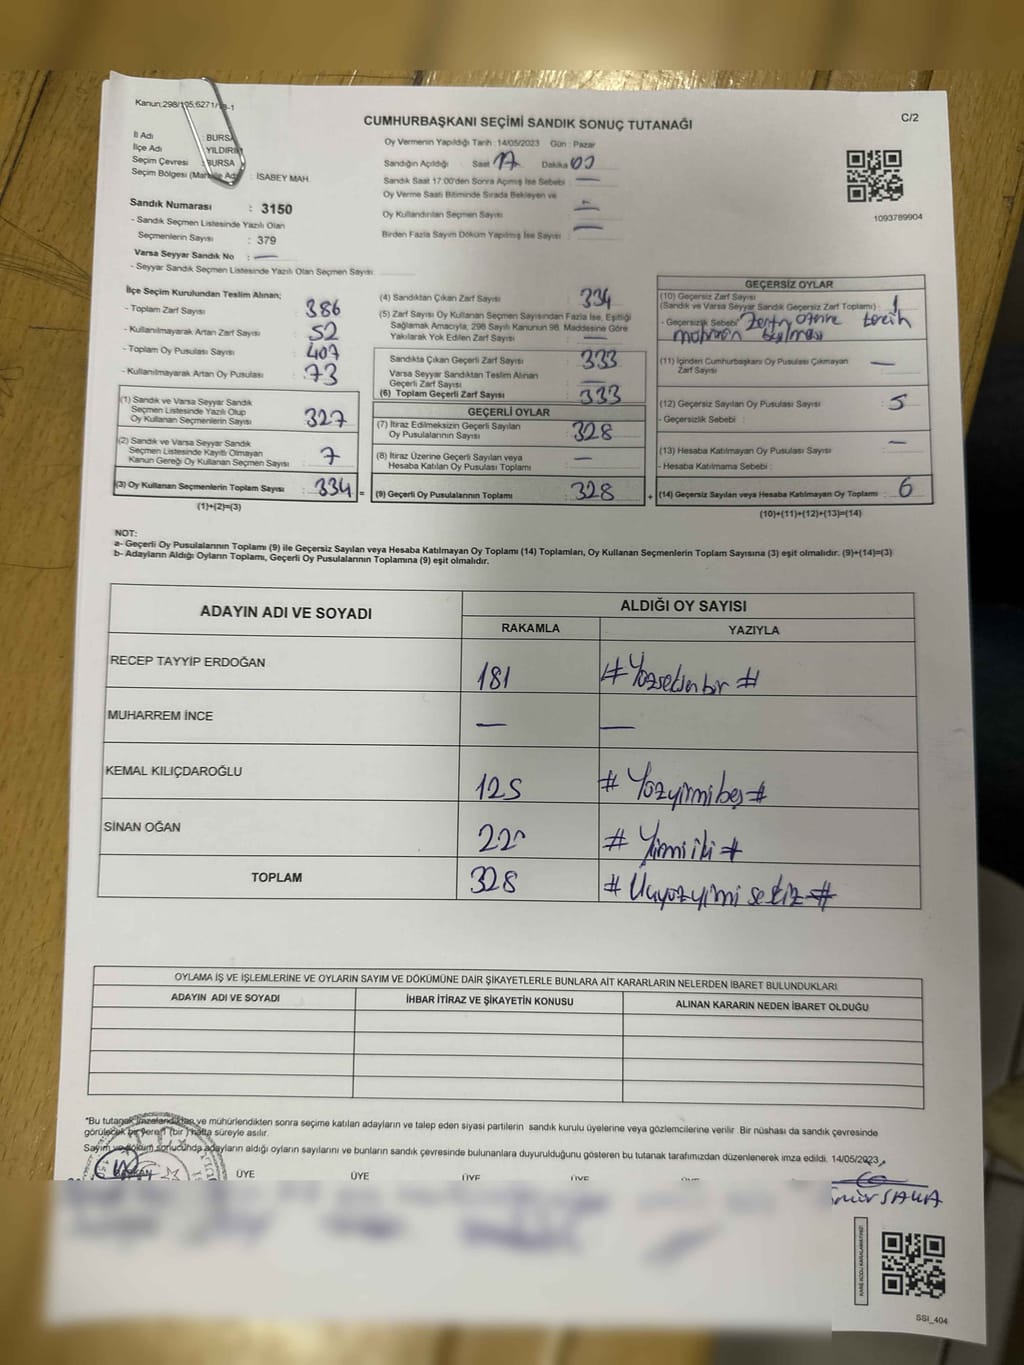 Kanun:298/105;6271/18-1
C/2
CUMHURBAŞKANI SEÇİMİ SANDIK SONUÇ TUTANAĞI
İl Adı : BURSA
İlçe Adı : YILDIRIM
Seçim Çevresi : BURSA
Seçim Bölgesi (Mahalle Adı) : İSABEY MAH.
Oy Vermenin Yapıldığı Tarih : 14/05/2023 Gün : Pazar
Sandığın Açıldığı Saat 17 Dakika 00
Sandık Saat 17:00'den Sonra Açılmış İse Sebebi : —
Oy Verme Saati Bitiminde Sırada Bekleyen ve
Oy Kullandırılan Seçmen Sayısı : —
Birden Fazla Sayım Döküm Yapılmış İse Sayısı : —
1093789904
Sandık Numarası : 3150
- Sandık Seçmen Listesinde Yazılı Olan
Seçmenlerin Sayısı : 379
Varsa Seyyar Sandık No : —
- Seyyar Sandık Seçmen Listesinde Yazılı Olan Seçmen Sayısı:
İlçe Seçim Kurulundan Teslim Alınan;
- Toplam Zarf Sayısı : 386
- Kullanılmayarak Artan Zarf Sayısı : 52
- Toplam Oy Pusulası Sayısı : 407
- Kullanılmayarak Artan Oy Pusulası : 73
(1) Sandık ve Varsa Seyyar Sandık
Seçmen Listesinde Yazılı Olup
Oy Kullanan Seçmenlerin Sayısı : 327
(2) Sandık ve Varsa Seyyar Sandık
Seçmen Listesinde Kayıtlı Olmayan
Kanun Gereği Oy Kullanan Seçmen Sayısı : 7
(3) Oy Kullanan Seçmenlerin Toplam Sayısı : 334 =
(1)+(2)=(3)
(4) Sandıktan Çıkan Zarf Sayısı : 334
(5) Zarf Sayısı Oy Kullanan Seçmen Sayısından Fazla İse, Eşitliği
Sağlamak Amacıyla, 298 Sayılı Kanunun 98. Maddesine Göre
Yakılarak Yok Edilen Zarf Sayısı : —
Sandıkta Çıkan Geçerli Zarf Sayısı : 333
Varsa Seyyar Sandıktan Teslim Alınan
Geçerli Zarf Sayısı : —
(6) Toplam Geçerli Zarf Sayısı : 333
GEÇERLİ OYLAR
(7) İtiraz Edilmeksizin Geçerli Sayılan
Oy Pusulalarının Sayısı : 328
(8) İtiraz Üzerine Geçerli Sayılan veya
Hesaba Katılan Oy Pusulası Toplamı : —
(9) Geçerli Oy Pusulalarının Toplamı : 328 +
GEÇERSİZ OYLAR
(10) Geçersiz Zarf Sayısı
(Sandık ve Varsa Seyyar Sandık Geçersiz Zarf Toplamı) : 1
- Geçersizlik Sebebi : Zarfın üzerine tercih
mührünün basılması
(11) İçinden Cumhurbaşkanı Oy Pusulası Çıkmayan
Zarf Sayısı : —
(12) Geçersiz Sayılan Oy Pusulası Sayısı : 5
- Geçersizlik Sebebi :
(13) Hesaba Katılmayan Oy Pusulası Sayısı : —
- Hesaba Katılmama Sebebi :
(14) Geçersiz Sayılan veya Hesaba Katılmayan Oy Toplamı : 6
(10)+(11)+(12)+(13)=(14)
NOT:
a- Geçerli Oy Pusulalarının Toplamı (9) ile Geçersiz Sayılan veya Hesaba Katılmayan Oy Toplamı (14) Toplamları, Oy Kullanan Seçmenlerin Toplam Sayısına (3) eşit olmalıdır. (9)+(14)=(3)
b- Adayların Aldığı Oyların Toplamı, Geçerli Oy Pusulalarının Toplamına (9) eşit olmalıdır.
ADAYIN ADI VE SOYADI
ALDIĞI OY SAYISI
RAKAMLA YAZIYLA
RECEP TAYYİP ERDOĞAN 181 # Yüzseksenbir #
MUHARREM İNCE — —
KEMAL KILIÇDAROĞLU 125 # Yüzyirmibeş #
SİNAN OĞAN 22 # Yirmiiki #
TOPLAM 328 # Üçyüzyirmisekiz #
OYLAMA İŞ VE İŞLEMLERİNE VE OYLARIN SAYIM VE DÖKÜMÜNE DAİR ŞİKAYETLERLE BUNLARA AİT KARARLARIN NELERDEN İBARET BULUNDUKLARI
ADAYIN ADI VE SOYADI İHBAR İTİRAZ VE ŞİKAYETİN KONUSU ALINAN KARARIN NEDEN İBARET OLDUĞU
*Bu tutanak imzalandıktan ve mühürlendikten sonra seçime katılan adayların ve talep eden siyasi partilerin sandık kurulu üyelerine veya gözlemcilerine verilir. Bir nüshası da sandık çevresinde
görülecek bir yere 1 (bir) hafta süreyle asılır.
Sayım ve döküm sonucunda adayların aldığı oyların sayılarını ve bunların sandık çevresinde bulunanlara duyurulduğunu gösteren bu tutanak tarafımızdan düzenlenerek imza edildi. 14/05/2023
BAŞKAN ÜYE ÜYE ÜYE ÜYE ÜYE
KARE KODU KARALAMAYINIZ!
SSI_404